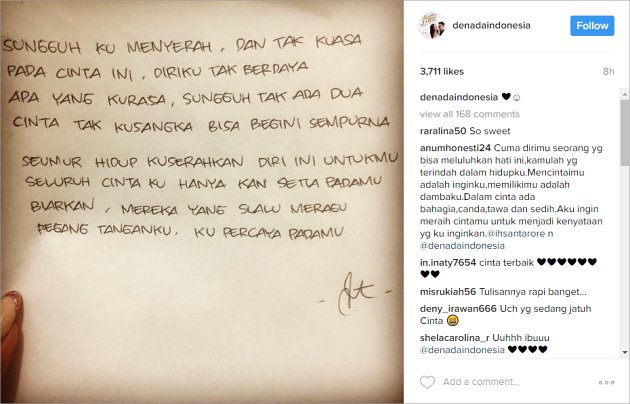 SUNGGUH KU MENYERAH, DAN TAK KUASA
PADA CINTA INI, DIRIKU TAK BERDAYA
APA YANG KURASA, SUNGGUH TAK ADA DUA
CINTA TAK KUSANGKA BISA BEGINI SEMPURNA
SEUMUR HIDUP KUSERAHKAN DIRI INI UNTUKMU
SELURUH CINTA KU HANYA KAN SETIA PADAMU
BIARKAN, MEREKA YANG SLALU MERAGU
PEGANG TANGANKU, KU PERCAYA PADAMU
denadaindonesia
Follow
3,711 likes
8h
denadaindonesia ♥☺
view all 168 comments
raralina50 So sweet
anumhonesti24 Cuma dirimu seorang yg
bisa meluluhkan hati ini,kamulah yg
terindah dalam hidupku.Mencintaimu
adalah inginku,memilikimu adalah
dambaku.Dalam cinta ada
bahagia,canda,tawa dan sedih.Aku ingin
meraih cintamu untuk menjadi kenyataan
yg ku inginkan.@ihsantarore n
@denadaindonesia
in.inaty7654 cinta terbaik ♥♥♥♥♥♥
♥♥
misrukiah56 Tulisannya rapi banget...
deny_irawan666 Uch yg sedang jatuh
Cinta 😄
shelacarolina_r Uuhhh ibuuu
@denadaindonesia ♥♥♥♥
Add a comment...